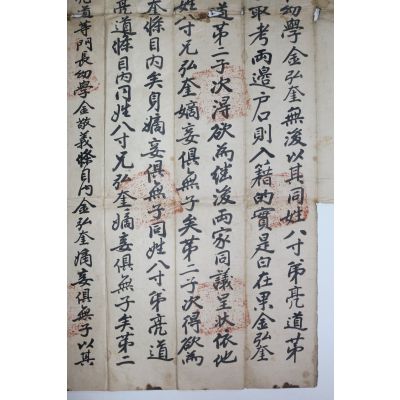 幼學金弘奎無後以其同姓八寸弟亮道第
取考兩邊戶則入籍的實是白在果金弘奎
道第二子次得欲爲継後兩家同議呈狀依他
姓八寸兄弘奎嫡妾俱無子矣第二子次得欲爲
奎條目內矣身嫡妾俱無子同姓八寸弟亮道
亮道條目內同姓八寸兄弘奎嫡妾俱無子矣第二
道等門長幼學金敬義條目內金弘奎嫡妾俱無子以其